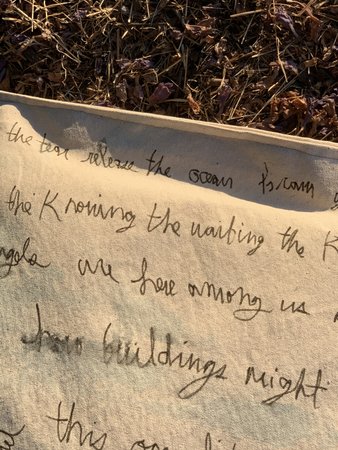 the tear release the ocean
the Knowing the waiting the K
we here among us
how buildings might
this